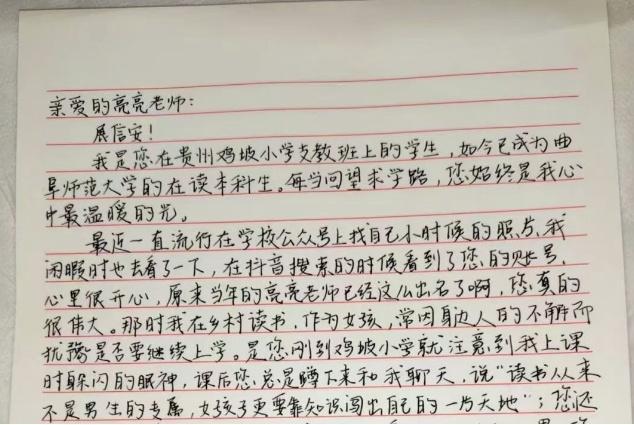 亲爱的亮亮老师：
展信安！
我是您在贵州鸡坡小学支教班上的学生，如今已成为曲
阜师范大学的在读本科生。每当回望求学路，您始终是我心
中最温暖的光。
最近一直流行在学校公众号上找自己小时候的照片，我
闲暇时也去看了一下，在抖音搜索的时候看到了您的账号，
心里很开心，原来当年的亮亮老师已经这么出名了啊，您真的
很伟大。那时我在乡村读书，作为女孩，常因身边人的不解而
犹豫是否要继续上学。是您刚到鸡坡小学就注意到我上课
时躲闪的眼神，课后您总是蹲下来和我聊天，说“读书从来
不是男生的专属，女孩子更要靠知识闯出自己的一片天地”；您还